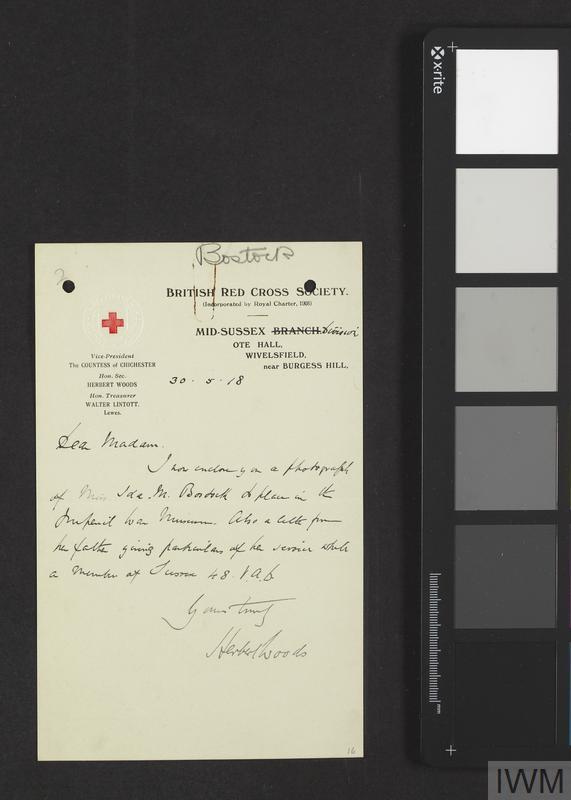 Bostock
2
BRITISH RED CROSS SOCIETY.
(Incorporated by Royal Charter, 1908)
MID-SUSSEX BRANCH. Division
OTE HALL,
WIVELSFIELD,
near BURGESS HILL,
Vice-President
The COUNTESS of CHICHESTER
Hon. Sec.
HERBERT WOODS
Hon. Treasurer
WALTER LINTOTT.
Lewes.
30 . 5 . 18
Dear Madam.
I now enclose you a photograph
of Miss Ida M. Bostock to place in the
Imperial War Museum. Also a letter from
her father giving particulars of her service while
a member of Sussex 48. V.A.D.
Yours truly
Herbert Woods
16
x-rite
mm
IWM